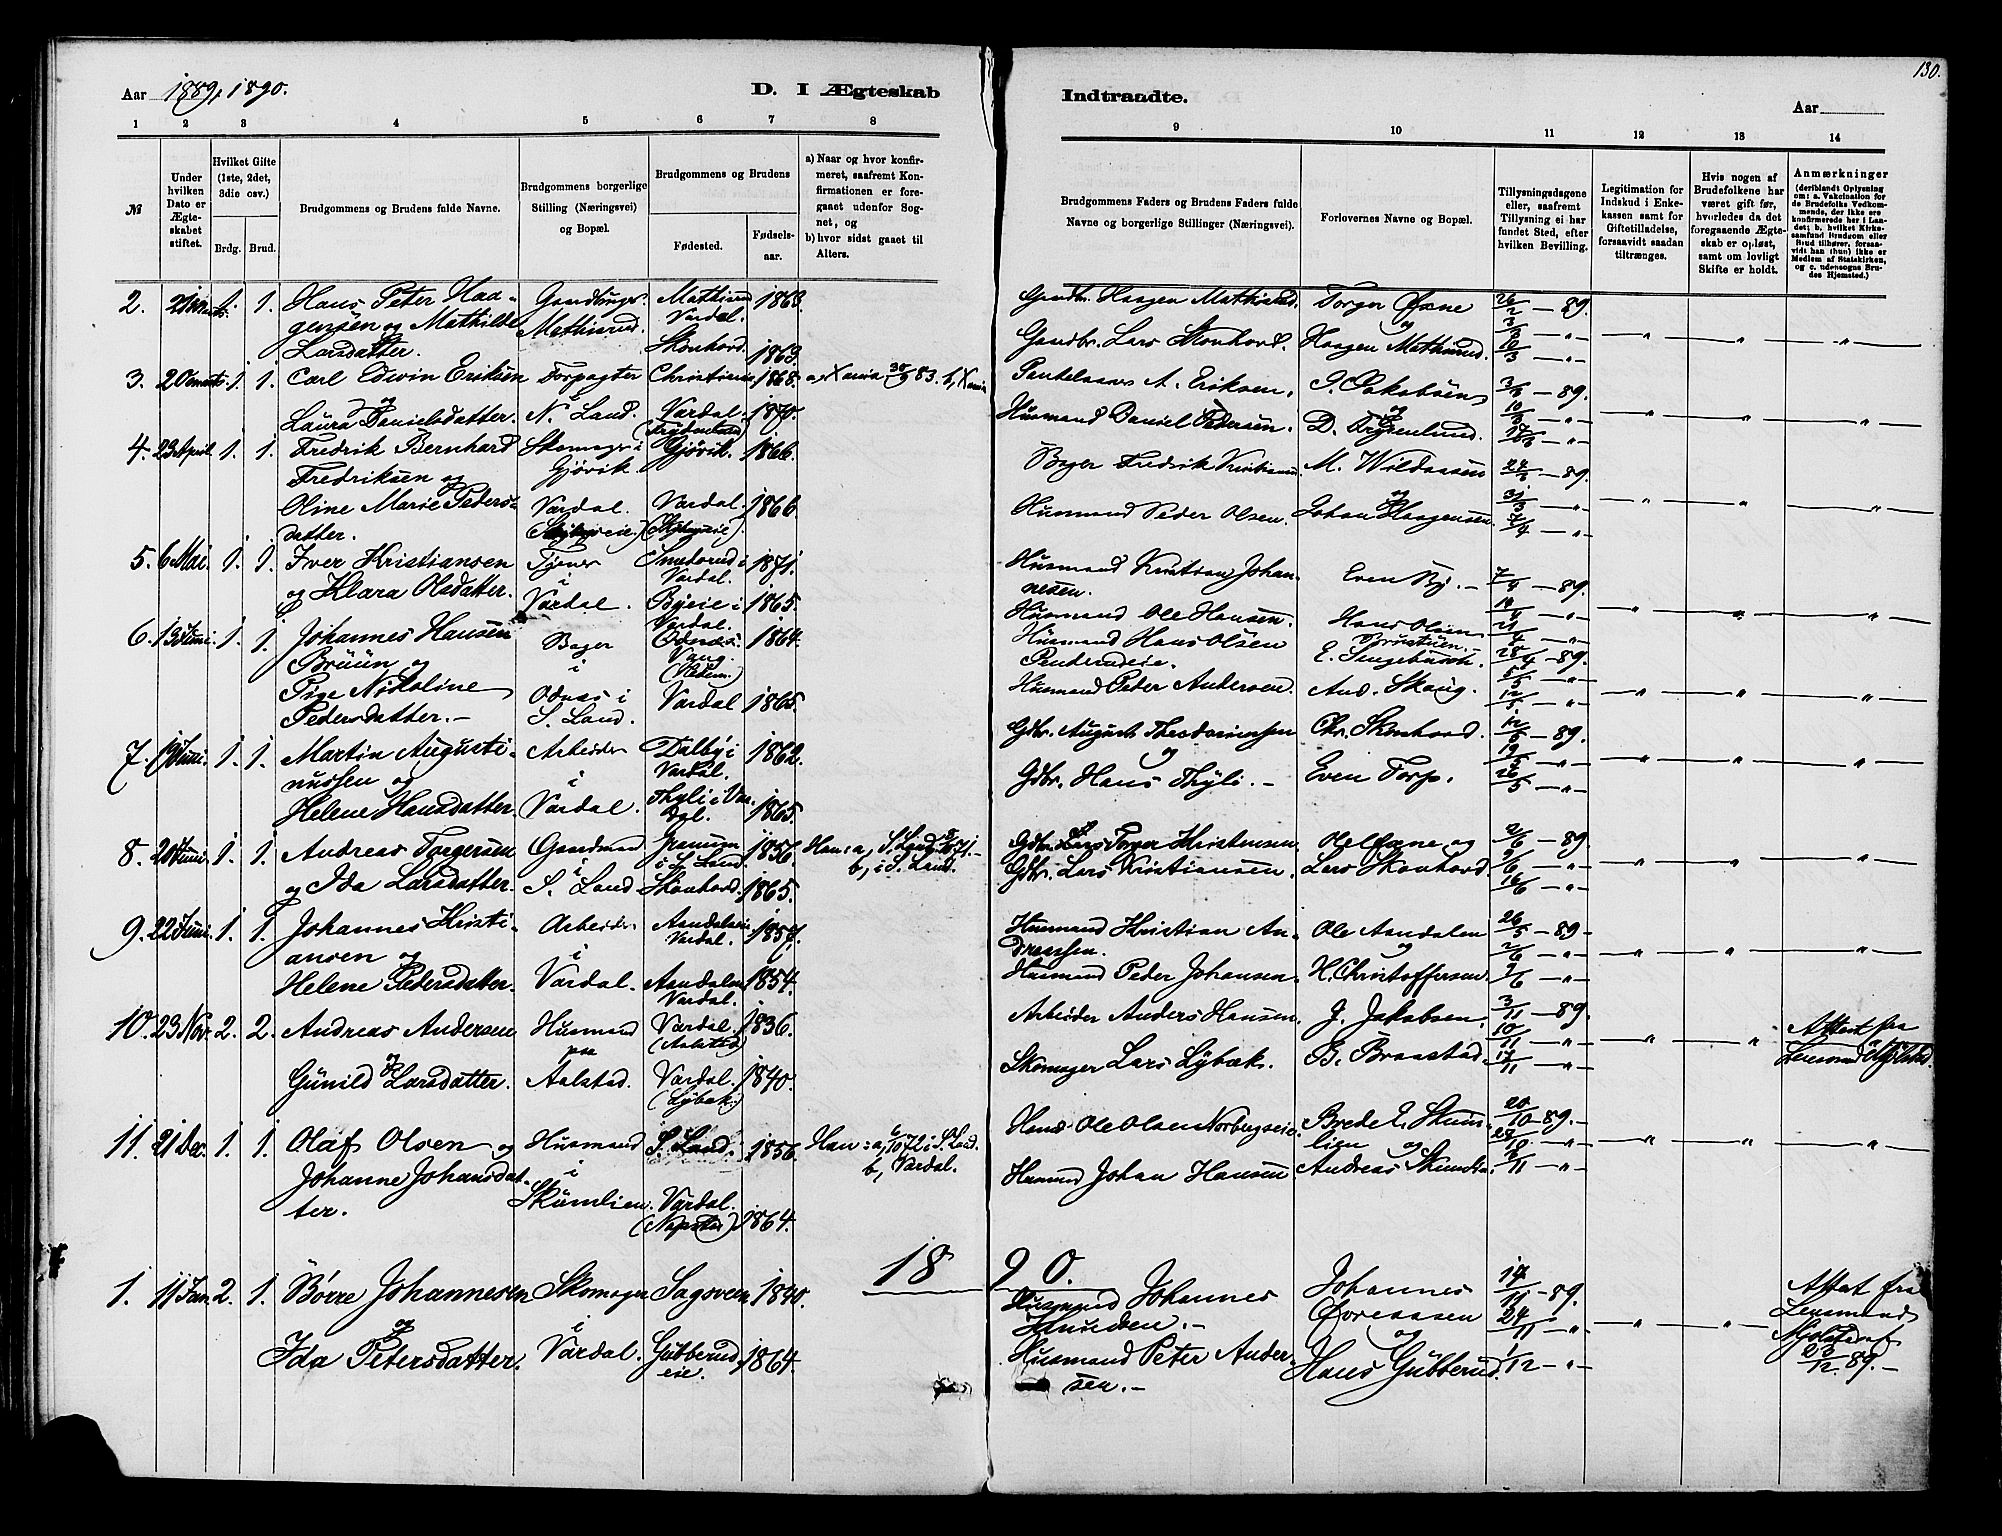 130.
Aar 1889, 1890.
D. I Ægteskab
Indtraadte.
Aar
1 2 3 4 5 6 7 8 9 10 11 12 13 14
№
Under hvilken Dato er Ægteskabet stiftet.
Hvilket Gifte (1ste, 2det, 3die osv.)
Brdg. Brud.
Brudgommens og Brudens fulde Navne.
Brudgommens borgerlige Stilling (Næringsvei) og Bopæl.
Brudgommens og Brudens
Fødested. Fødsels-aar.
a) Naar og hvor konfirmeret, saafremt Konfirmationen er foregaaet udenfor Sognet, og
b) hvor sidst gaaet til Alters.
Brudgommens Faders og Brudens Faders fulde Navne og borgerlige Stillinger (Næringsvei).
Forlovernes Navne og Bopæl.
Tillysningsdagene eller, saafremt Tillysning ei har fundet Sted, efter hvilken Bevilling.
Legitimation for Indskud i Enkekassen samt for Giftetilladelse, forsaavidt saadan tiltrænges.
Hvis nogen af Brudefolkene har været gift før, hvorledes da det foregaaende Ægteskab er opløst, samt om lovligt Skifte er holdt.
Anmærkninger
(deriblandt Oplysning om: a. Vakcination for de Brudefolks Vedkommende, der ikke ere konfirmerede her i Landet; b. hvilket Kirkesamfund Brudgom eller Brud tilhører, forsaavidt han (hun) ikke er Medlem af Statskirken, og c. udensogns Brudes Hjemsted.)
2. 1. 1. Hans Peter Haagensen og Mathilde Larsdatter. Mathisrud. Mathisrud Vardal. 1863. Skonhord. 1863. Gaardbr. Haagen Mathisrud. Gaardbr. Lars Skonhord. Torger Øxne og Haagen Mathisrud. 26/2 — 89. 3/3 — „ — 10/3 — „ —
3. 20 marts 1. 1. Carl Edvin Eriksen og Laura Danielsdatter. Forpagter N. Land. Christiania 1868. Vardal. 1870. a, Xania 30/9 83. b, Xania A. Eriksen. Husmand Daniel Pedersen. I. Jakobsen og D. 3/3 — 89. 10/3 — „ — 17/3 — „ —
4. 23 April 1. 1. Fredrik Bernhard Fredriksen og Oline Marie Pedersdatter. Skomager i Gjøvik. Vardal. Gjøvik. 1866. Vardal. 1866. Bager Fredrik Kristiansen Husmand Peder Olsen. M. Wildaasen og Johan Haagensen. 24/3 — 89. 31/3 — „ — 7/4 — „ —
5. 6 Mai. 1. 1. Iver Kristiansen og Klara Olsdatter. Tjener i Vardal. Vardal. 1871. Byeie i Vardal. 1865. Husmand Kristian Johannesen. Husmand Ole Hansen. Even By. Hans Olsen 7/4 — 89. 14/4 — „ — 21/4 — „ —
6. 13 Juni. 1. 1. Johannes Hansen Brüün og Pige Nikoline Pedersdatter. — Bager i Odnæs i S. Land. Vang. 1864. Vardal 1865. Husmand Hans Olsen Husmand Peder Andersen. And. Skaug. 28/4 — 89. 5/5 — „ — 12/5 — „ —
7. 19 Juni. 1. 1. Martin Augustinussen og Helene Hansdatter. Arbeider i Vardal. Dalby i Vardal. 1862. Thyli i Vardal. 1865. Gdbr. August og Gdbr. Hans Thyli. — Chr. Skonhord. Even Torp. 12/5 — 89. 19/5 — „ — 26/5 — „ —
8. 20 Juni. 1. 1. Andreas Torgersen og Ida Larsdatter. Gaardmand i S. Land Granum i S. Land 1856. Skonhord. 1865. Han: a, S. Land 71. — b, i S. Land. Gdbr. Torger Kristensen Gdbr. Lars Kristiansen. Ole Øxne og Lars Skonhord. 2/6 — 89. 9/6 — „ — 16/6 — „ —
9. 22 Juni. 1. 1. Johannes Kristiansen og Helene Pedersdatter. Arbeider i Vardal. Vardal. 1857. Aandalen Vardal. 1854. Husmand Kristian Andreassen. Husmand Peder Johansen. Ole Aandalen og H. Christoffersen 26/5 — 89 — 2/6 — „ — 9/6 — „ —
10. 23 Nov. 2. 2. Andreas Andersen og Gunild Larsdatter. Husmand paa Aalstad. Vardal. (Aalstad) 1836. Vardal. (Lybæk.) 1840. Arbeider Anders Hansen. Skomager Lars Lybæk. J. Jakobsen. B. Braastad. 3/11 — 89. 10/11 — „ — 17/11 — „ — Attest fra Lensmand Mjølstad.
11. 21 Dec. 1. 1. Olaf Olsen og Johanne Johansdatter. Husmand i Skümlien. S. Land. 1856. Vardal. 1864. Han: a, 6/10 72 i S. Land. b, Vardal. Husmd. Ole Olsen Norbygseie. Husmand Johan Hansen Brede E. Skumlien og Andreas Skumlien. 20/10 — 89. 27/10 — „ — 3/11 — „ —
1890.
1. 11 Jan. 2. 1. Børre Johannesen og Ida Petersdatter. Skomager i Vardal. Sagsveen 1840. Gübberudeie. 1864. Husmand Johannes Knudsen. — Husmand Peter Andersen. — Johannes Øveraasen og Hans Gübberud. 17/11 — 89. 24/11 — „ — 1/12 — „ — Attest fra Lensmand Mjølstad 23/12 89. —